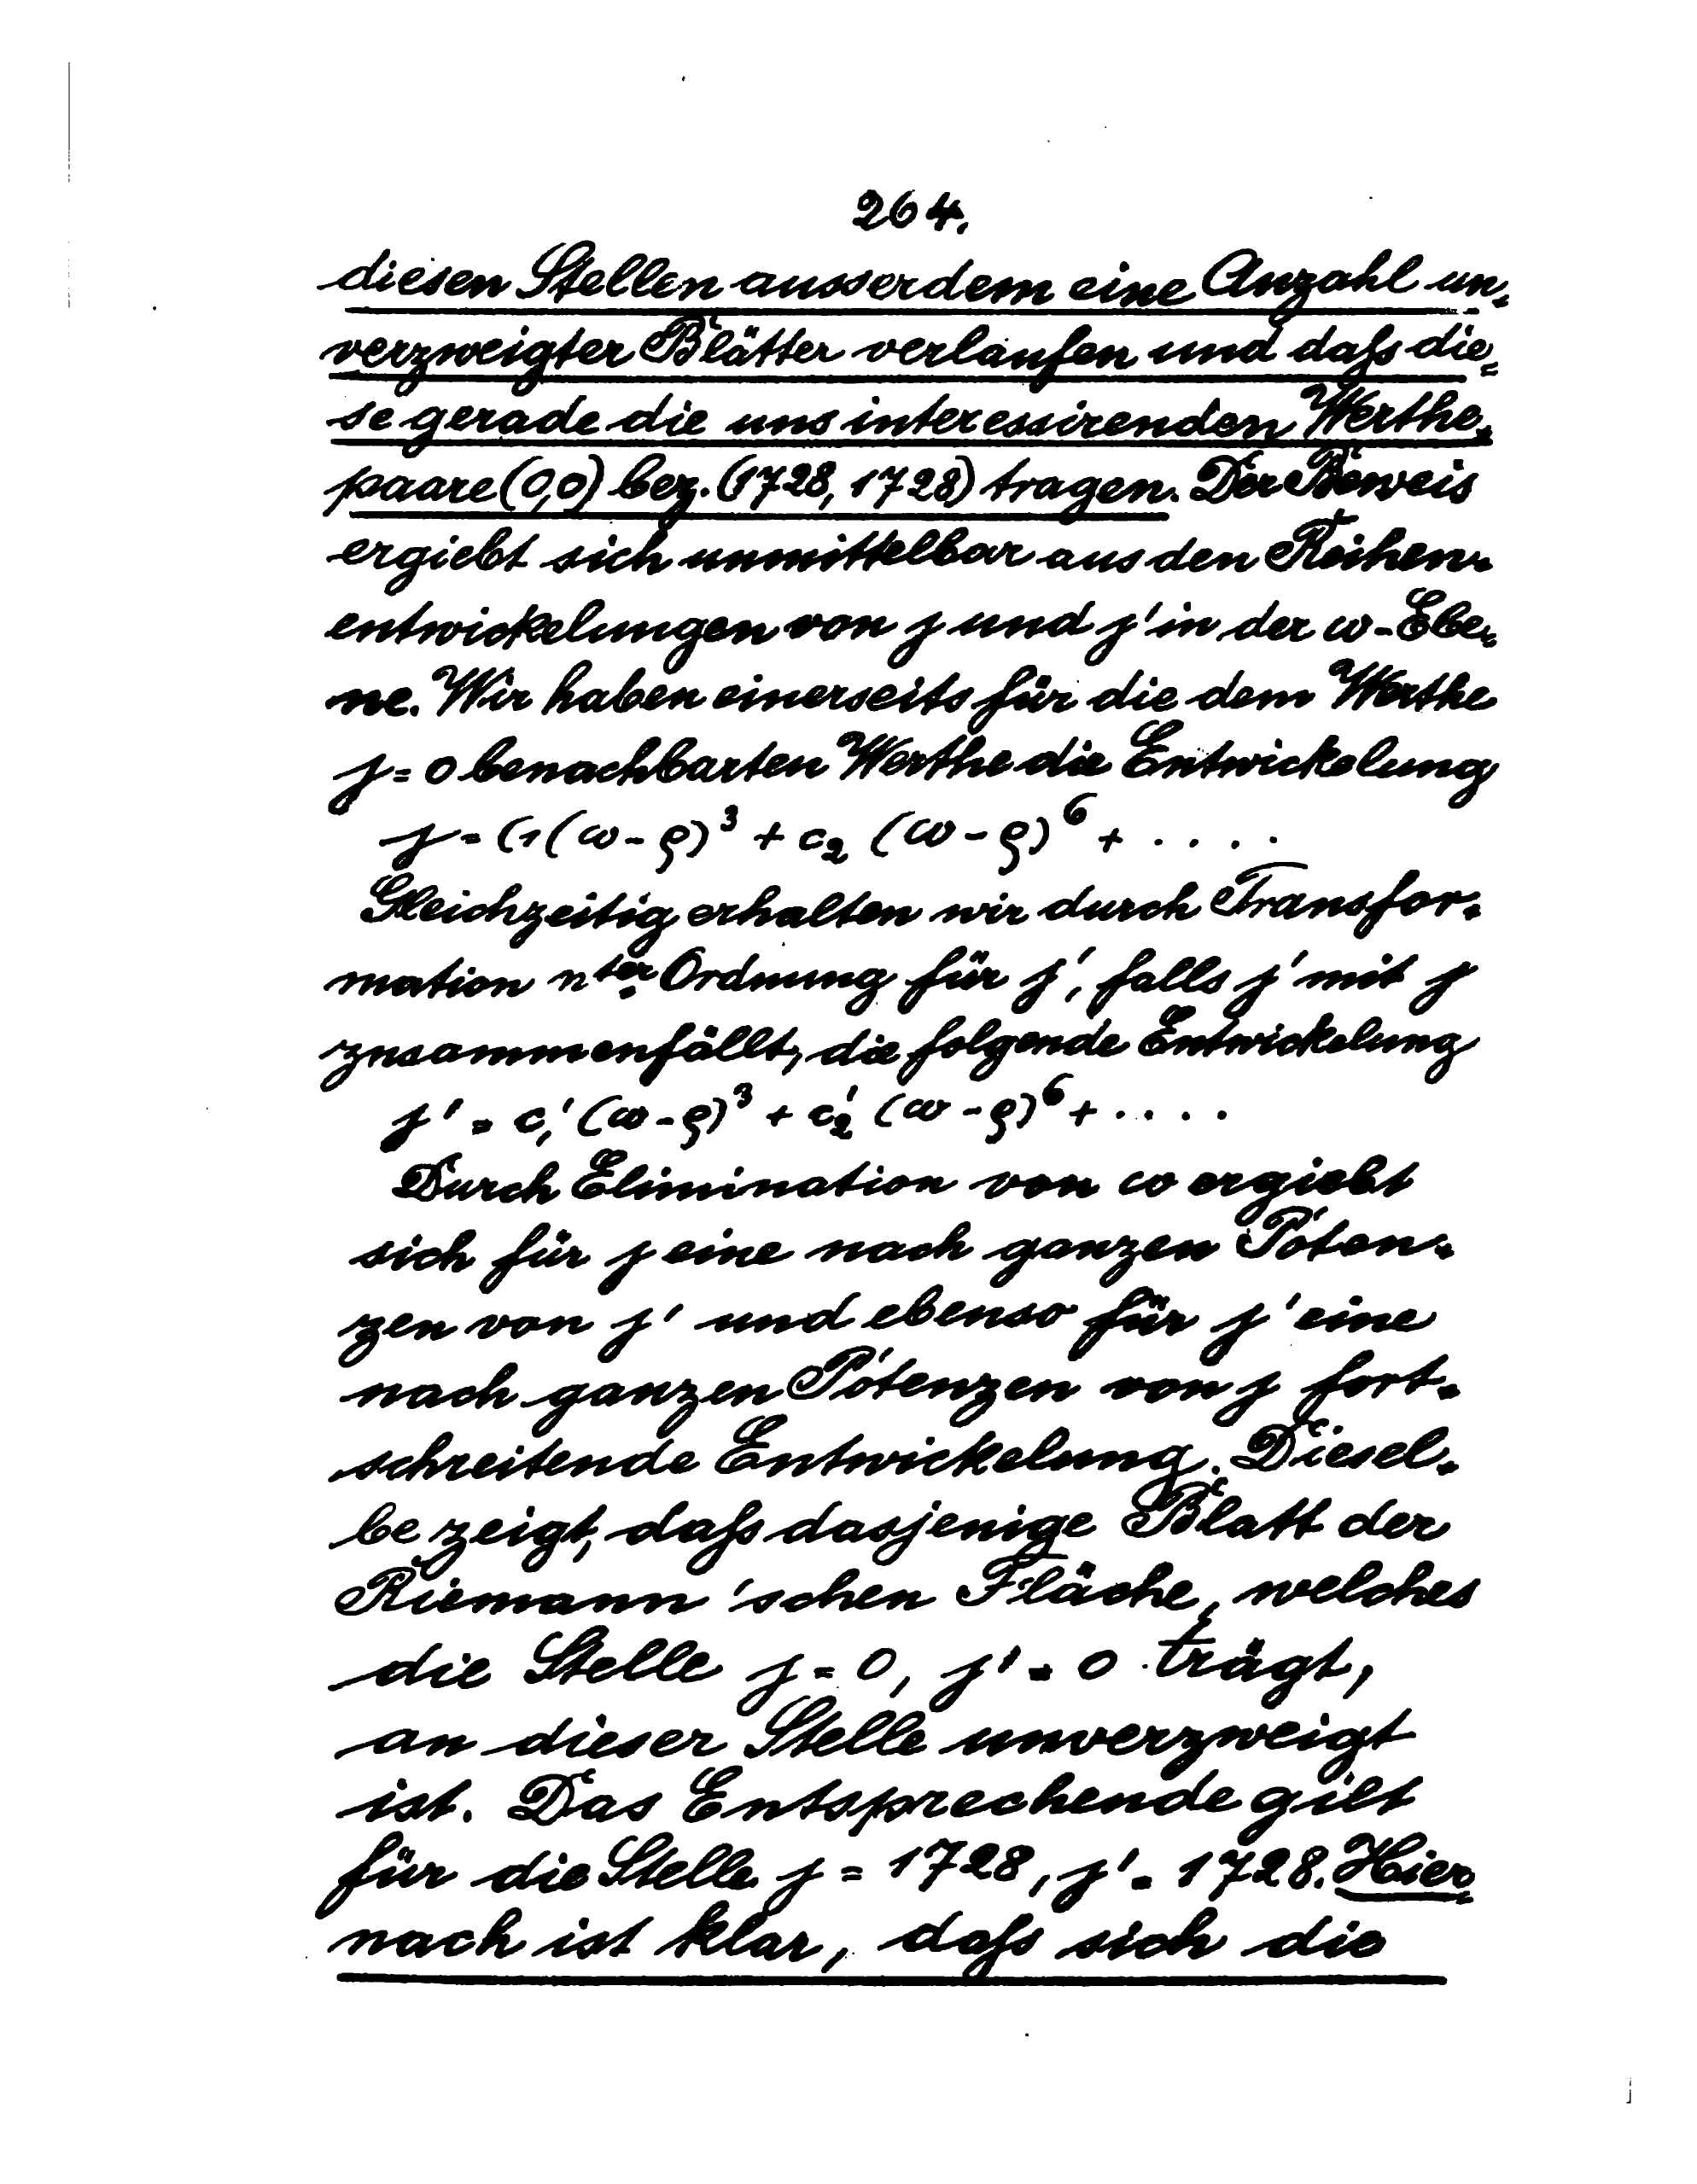 264.
diesen Stellen ausserdem eine Anzahl un-
verzweigter Blätter verlaufen und daſs die-
se gerade die uns interessirenden Werthe-
paare (0,0) bez. (1728, 1728) tragen. Der Beweis
ergiebt sich unmittelbar aus den Reihen-
entwickelungen von j und j' in der ω-Ebe-
ne. Wir haben einerseits für die dem Werthe
j = 0 benachbarten Werthe die Entwickelung
j = c₁(ω - ϱ)³ + c₂ (ω - ϱ)⁶ + ....
Gleichzeitig erhalten wir durch Transfor-
mation nter Ordnung für j', falls j' mit j
zusammenfällt, die folgende Entwickelung
j' = c₁' (ω - ϱ)³ + c₂' (ω - ϱ)⁶ + .....
Durch Elimination von ω ergiebt
sich für j eine nach ganzen Poten-
zen von j' und ebenso für j' eine
nach ganzen Potenzen von j fort-
schreitende Entwickelung. Diesel-
be zeigt, daſs dasjenige Blatt der
Riemann'schen Fläche, welches
die Stelle j = 0, j' = 0 trägt,
an dieser Stelle unverzweigt
ist. Das Entsprechende gilt
für die Stelle j = 1728, j' = 1728. Hier-
nach ist klar, daſs sich die